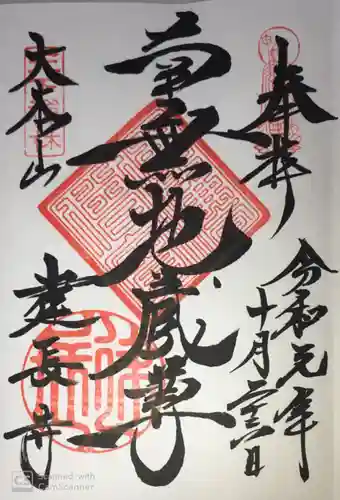 奉拝
令和元年
十月二六日
南無地蔵尊
大本山
建長寺
Scanned with
CamScanner